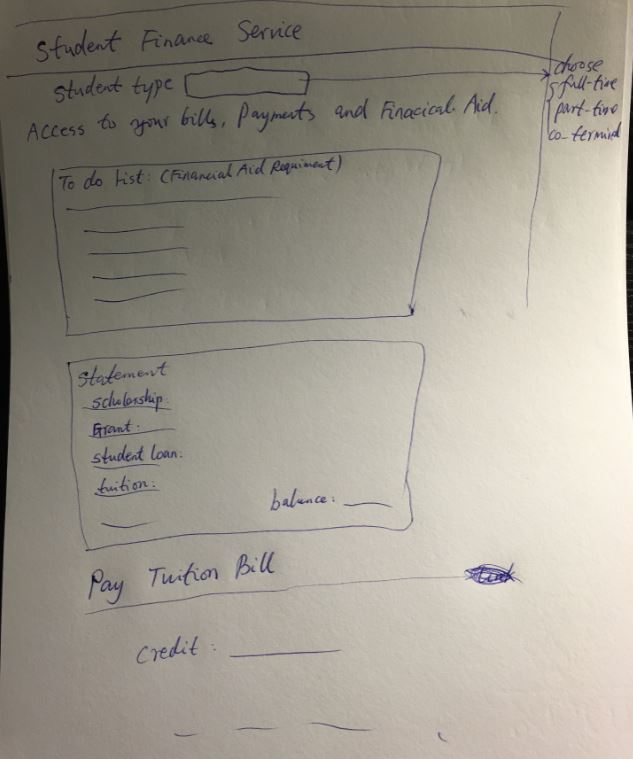 Student Finance Service
Student type
choose
full-time
part-time
co-termind
Access to your bills, Payments and Finacical Aid.
To do List: (Financial Aid Requiment)
Statement
scholarship:
Grant:
student loan:
tuition:
balance:
Pay Tuition Bill
Credit: